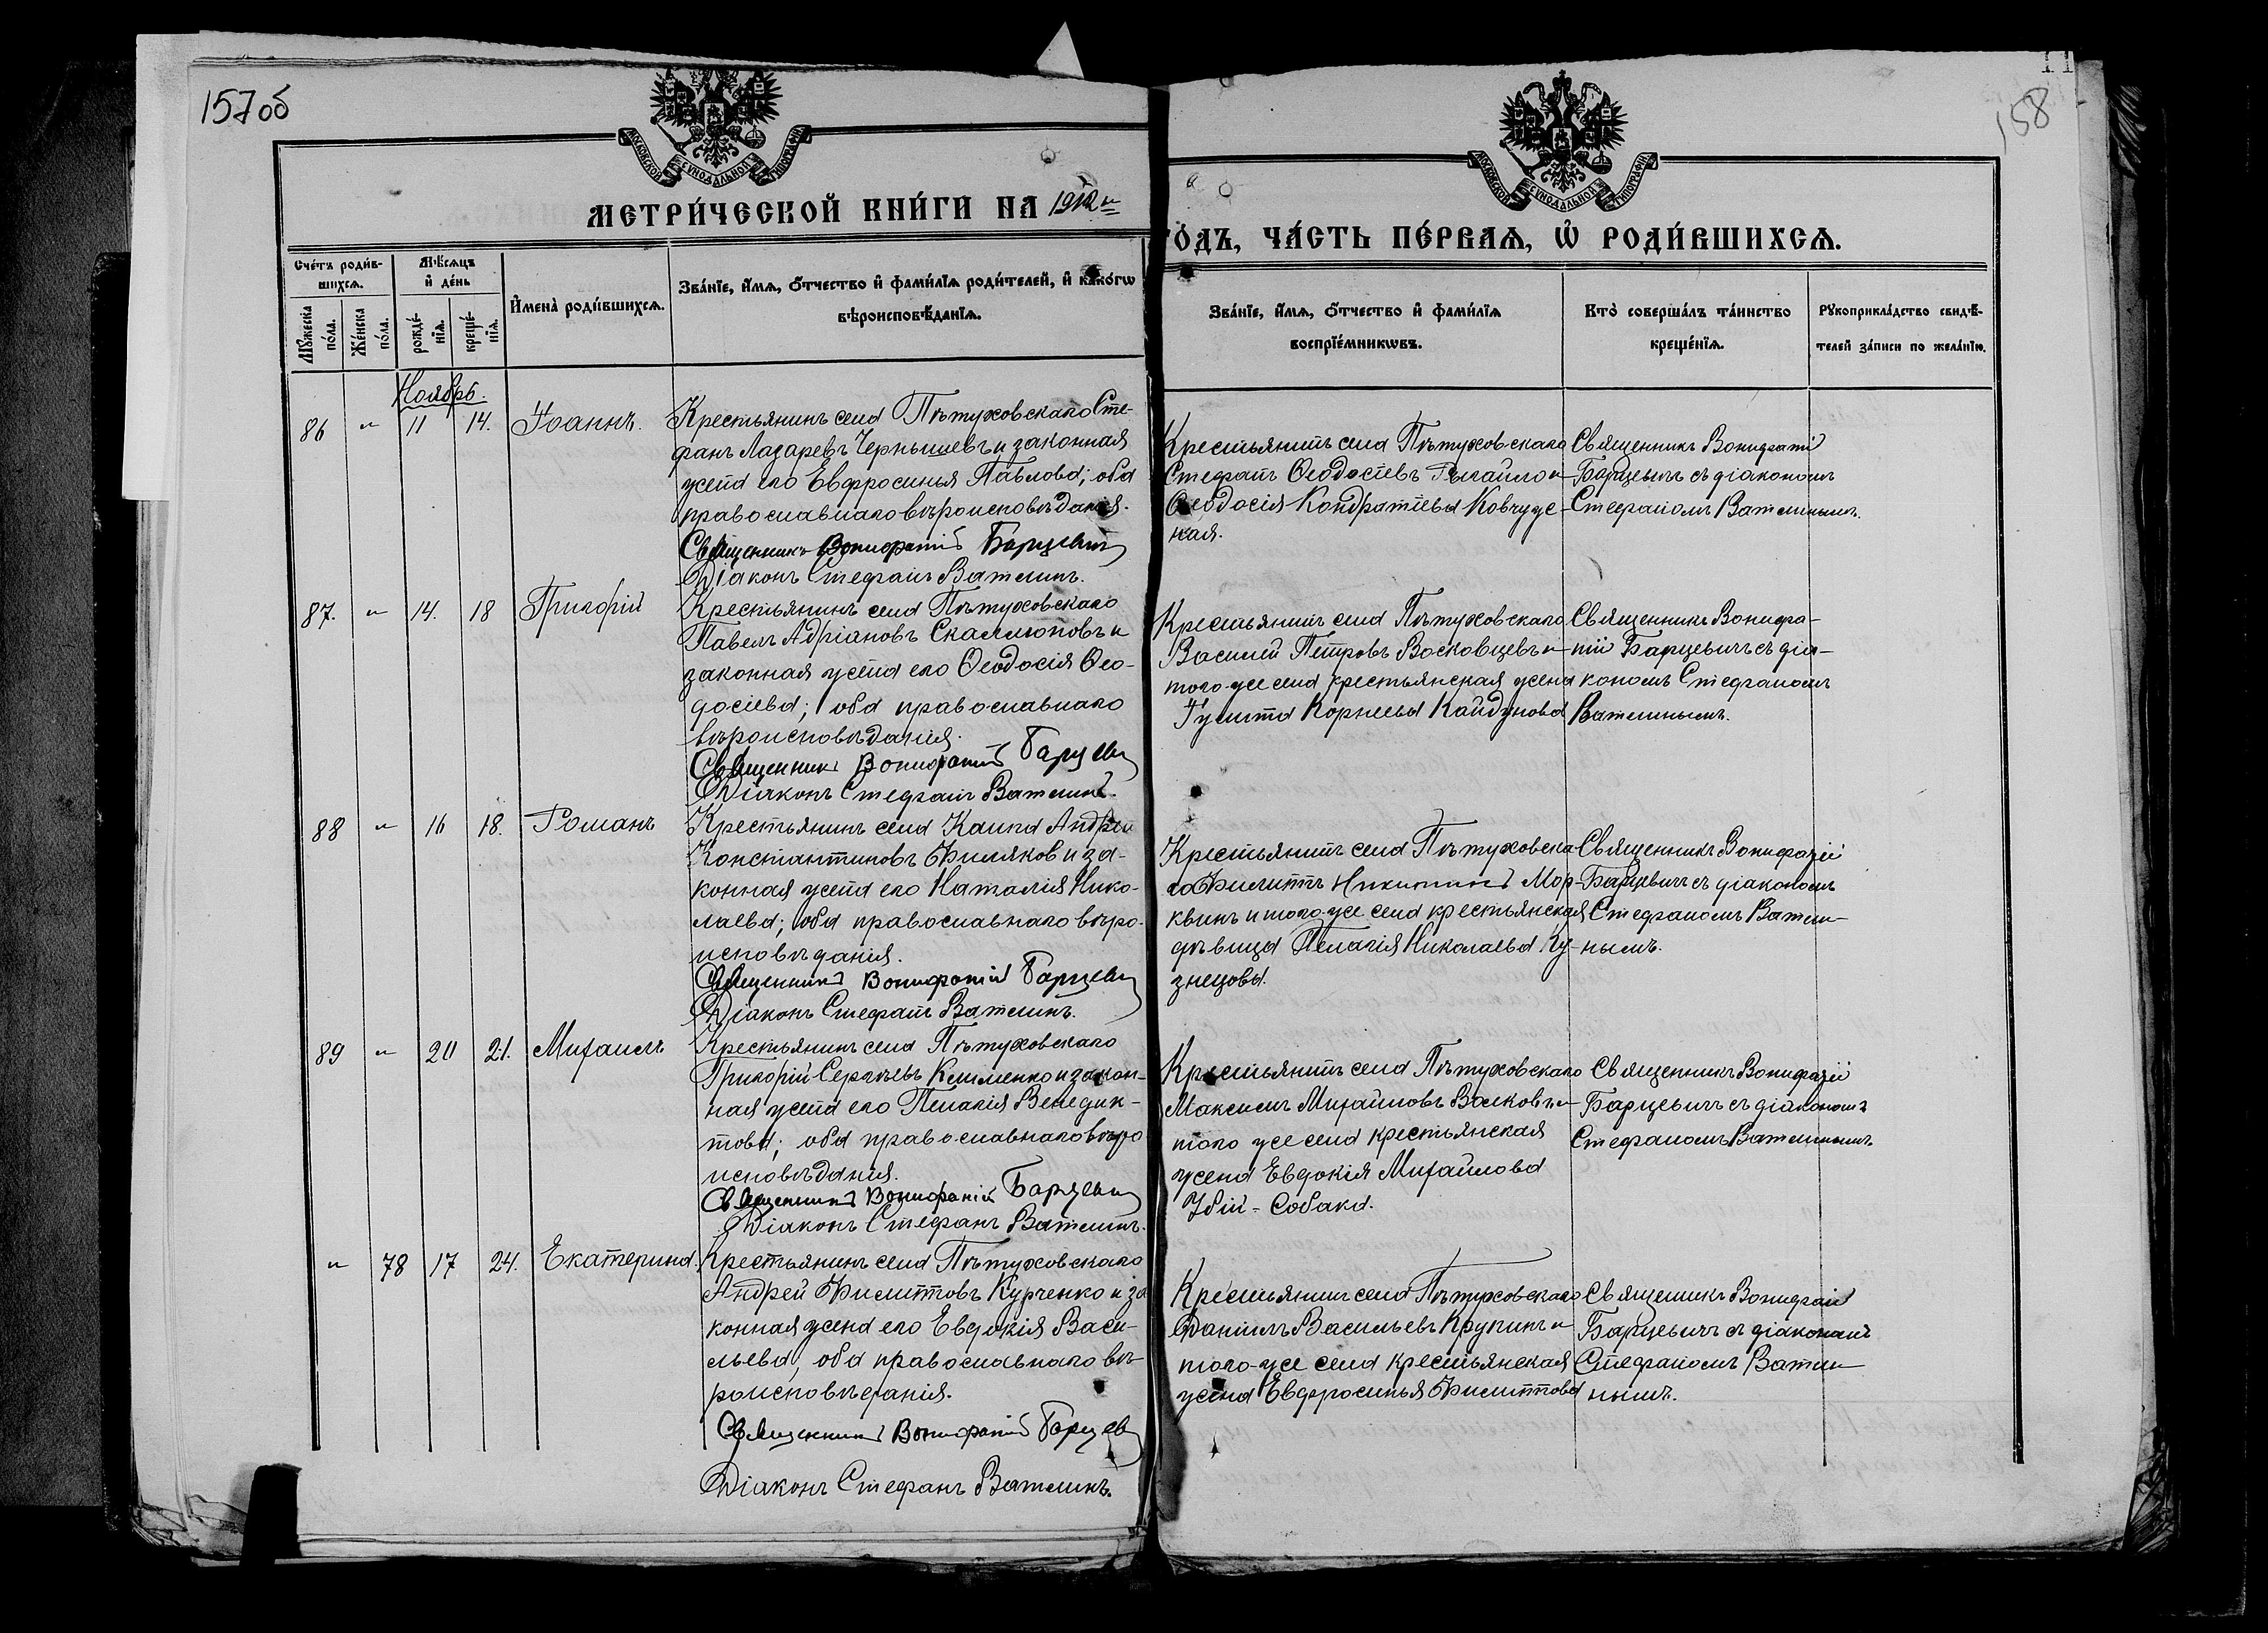 157 об
158
МОСКОВСКОЙ СѴНОДАЛЬНОЙ ТИПОГРАФІИ
МОСКОВСКОЙ СѴНОДАЛЬНОЙ ТИПОГРАФІИ
МЕТРИ́ЧЕСКОЙ КНИ́ГИ НА 1912 й
ГО́ДЪ, ЧА́СТЬ ПЕ́РВАѦ, Ѡ҆ РОДИ́ВШИХСѦ.
Сче́тъ роди́в-
шихсѧ.
Мꙋ́жеска по́ла.
Же́нска по́ла.
Мѣ́сѧцъ
и҆ де́нь
рожде́-
нїѧ.
креще́-
нїѧ.
И҆мена̀ роди́вшихсѧ.
Зва́нїе, и҆́мѧ, ѻ҆́тчество и҆ фами́лїѧ роди́телей, и҆ како́гѡ
вѣроисповѣ́данїѧ.
Зва́нїе, и҆́мѧ, ѻ҆́тчество и҆ фами́лїѧ
воспрїе́мникѡвъ.
Кто̀ соверша́лъ та́инство
креще́нїѧ.
Рꙋкоприкла́дство свидѣ́-
телей за́писи по жела́нїю.
Ноябрь.
86 " 11 14. Іоаннъ.
Крестьянинъ села Пѣтуховскаго Сте-
фанъ Лазаревъ Чернышевъ и законная
жена его Евфросинья Павлова; оба
православнаго вѣроисповѣданія.
Священникъ Вонифатій Барцевичъ
Діаконъ Стефанъ Ватлинъ.
Крестьянинъ села Пѣтуховскаго
Стефанъ Ѳеодосіевъ и
Ѳеодосія Кондратіева
кая.
Священникъ Вонифатій
Барцевичъ съ діакономъ
Стефаномъ Ватлинымъ.
87. " 14. 18 Григорій
Крестьянинъ села Пѣтуховскаго
Павелъ Адріановъ Скаллюповъ и
законная жена его Ѳеодосія Ѳео-
досіева; оба православнаго
вѣроисповѣданія.
Священникъ Вонифатій Барцевичъ
Діаконъ Стефанъ Ватлинъ.
Крестьянинъ села Пѣтуховскаго
Василій Петровъ Восковцевъ и
того-же села крестьянская жена
Іулита Корнеева Кайдунова
Священникъ Вонифа-
тій Барцевичъ съ діа-
кономъ Стефаномъ
Ватлинымъ.
88 " 16 18. Романъ
Крестьянинъ села Каипа Андрей
Константиновъ Филяков и за-
конная жена его Наталія Нико-
лаева; оба православнаго вѣро-
исповѣданія.
Священникъ Вонифатій Барцевичъ
Діаконъ Стефанъ Ватлинъ.
Крестьянинъ села Пѣтуховска-
го Филиппъ Никитинъ Мор-
квинъ и того-же села крестьянская
дѣвица Пелагія Николаева Ку-
знецова.
Священникъ Вонифатій
Барцевичъ съ діакономъ
Стефаномъ Ватли-
нымъ.
89 " 20 21. Михаилъ
Крестьянинъ села Пѣтуховскаго
Григорій Сергѣевъ Клименко и закон-
ная жена его Пелагія Венедик-
това; оба православнаго вѣро
исповѣданія.
Священникъ Вонифатій Барцевичъ
Діаконъ Стефанъ Ватлинъ.
Крестьянинъ села Пѣтуховскаго
Максимъ Михайловъ Волковъ и
того же села крестьянская
жена Евдокія Михайлова
Убій-Собака.
Священникъ Вонифатій
Барцевичъ съ діакономъ
Стефаномъ Ватлинымъ.
" 78 17 24. Екатерина.
Крестьянинъ села Пѣтуховскаго
Андрей Филипповъ Курченко и за
конная жена его Евдокія Васи-
льева; оба православнаго вѣ-
роисповѣданія.
Священникъ Вонифатій Барцев
Діаконъ Стефанъ Ватлинъ.
Крестьянинъ села Пѣтуховскаго
Даніилъ Васильевъ Крупинъ и
того-же села крестьянская
жена Евфросинья Филиппова
Священникъ Вонифатій
Барцевичъ съ діакономъ
Стефаномъ Ватли-
нымъ.